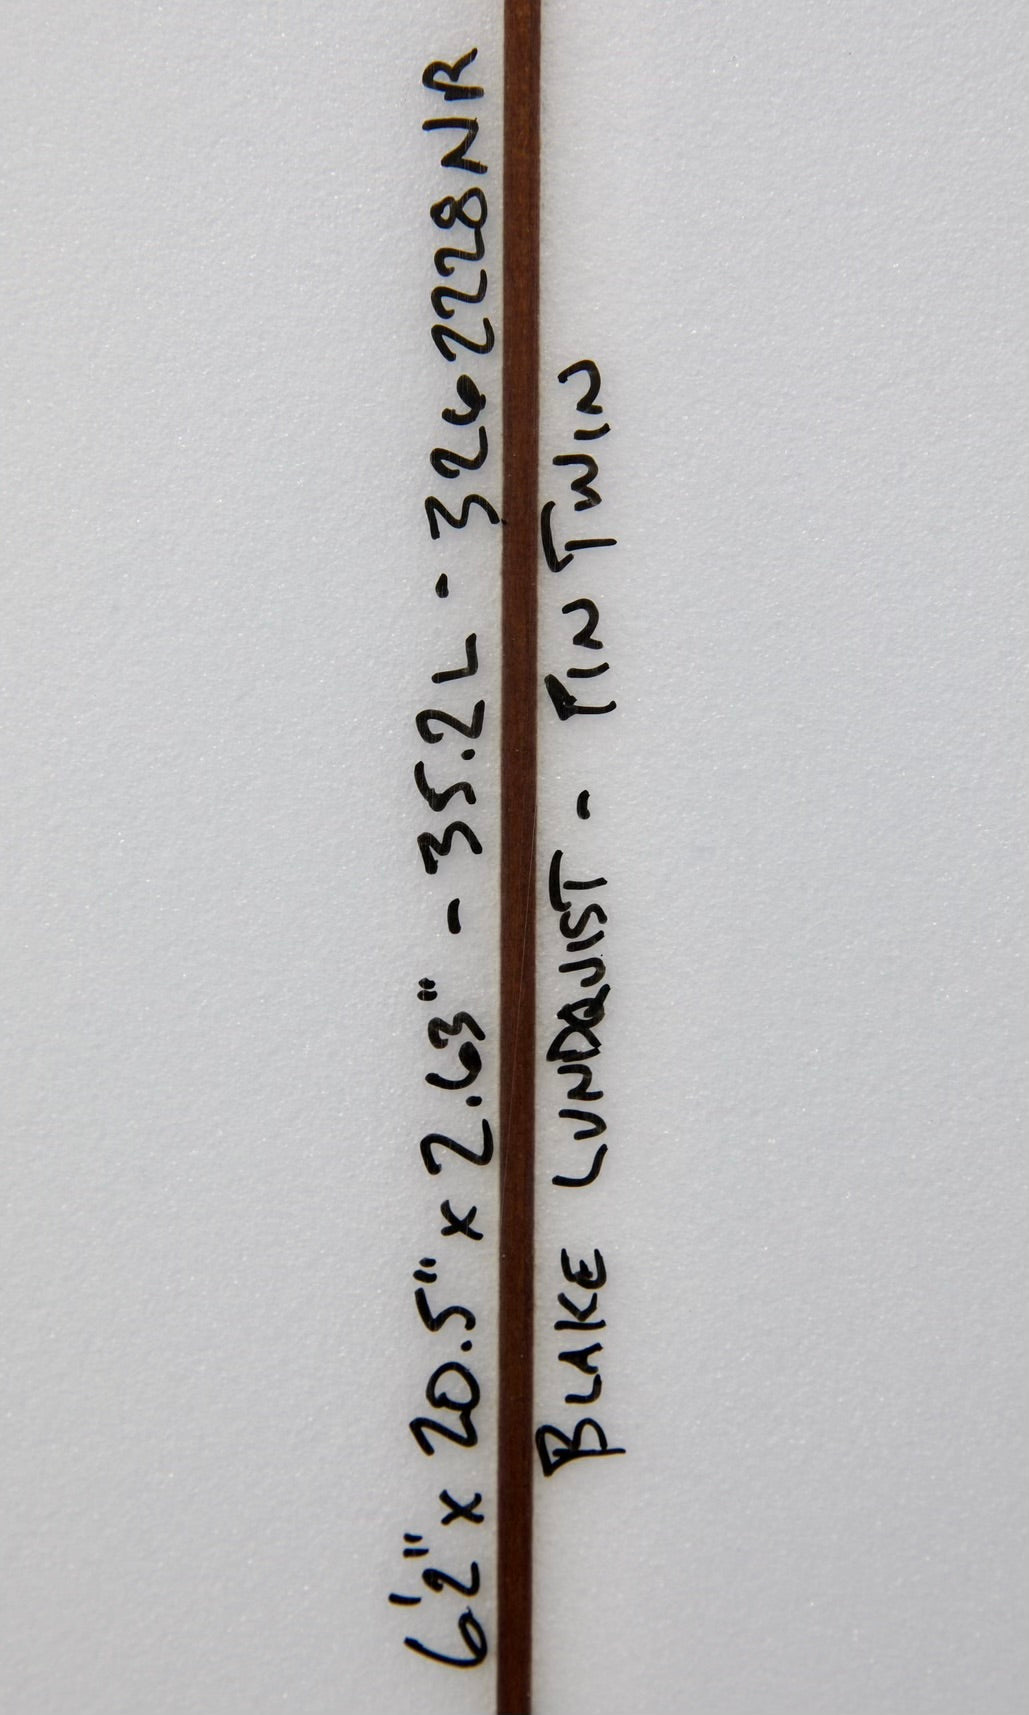 6'2" x 20.5" x 2.63" - 35.2L - 3262228NR
BLAKE LUNDQUIST - PIN TWIN